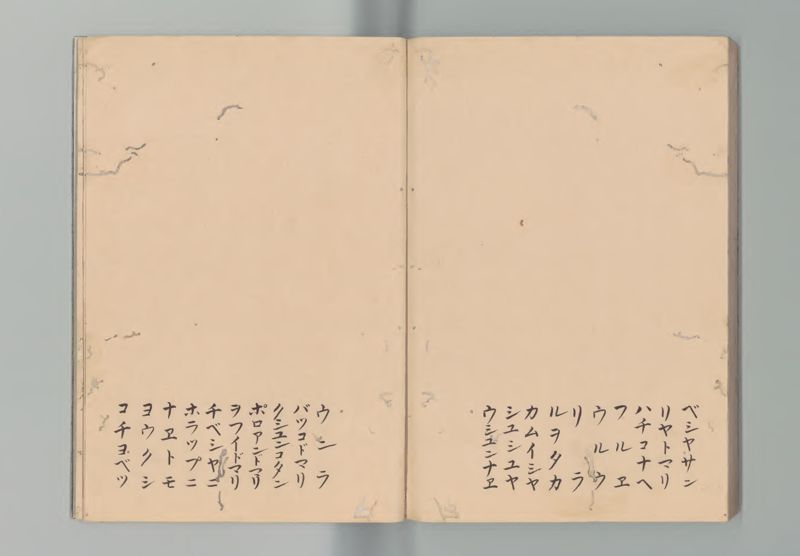 ベシヤサン
リヤトマリ
ハチコナヘ
フルヱ
ウルウ
リラ
ルヲタカ
カムイシヤ
シユシユヤ
ウシユンナヱ
ウンラ
バツコドマリ
クシユンコタン
ポロアンドマリ
ヲフイドマリ
チベシヤニ
ホラツプニ
ナヱトモ
ヨウクシ
コチヨベツ